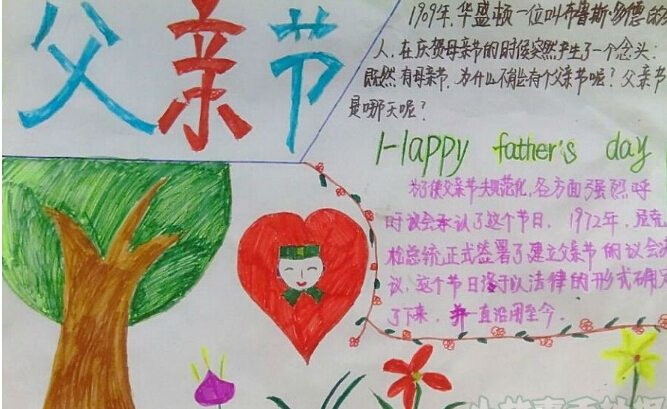 父亲节
1909年，华盛顿一位叫布鲁斯·多德的
人，在庆贺母亲节的时候突然产生了一个念头：
既然有母亲节，为什么不能有个父亲节呢？父亲节
是哪天呢？
Happy father's day
为了使父亲节规范化，各方面强烈呼
吁议会承认了这个节日。1972年，尼克
松总统正式签署了建立父亲节的议会
议，这个节日终于以法律的形式确
了下来，并一直沿用至今。